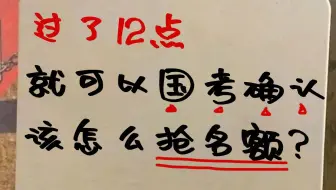 过了12点
就可以国考确认
该怎么抢名额?